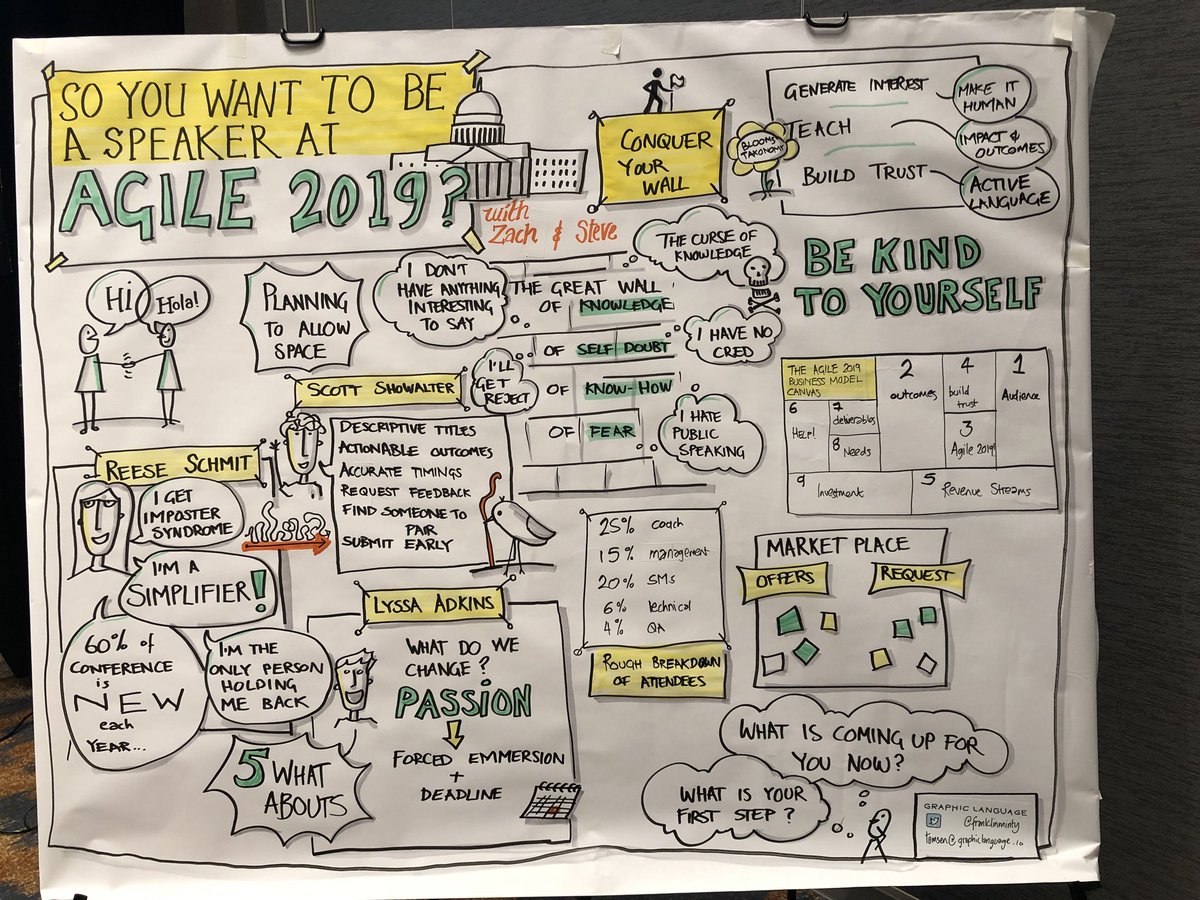 SO YOU WANT TO BE
A SPEAKER AT
AGILE 2019?
with
Zach & Steve
CONQUER
YOUR
WALL
BLOOMS
TAXONOMY
GENERATE INTEREST
MAKE IT
HUMAN
TEACH
IMPACT &
OUTCOMES
BUILD TRUST
ACTIVE
LANGUAGE
BE KIND
TO YOURSELF
Hi
Hola!
PLANNING
TO ALLOW
SPACE
I DON'T
HAVE ANYTHING
INTERESTING
TO SAY
THE CURSE OF
KNOWLEDGE
THE GREAT WALL
OF KNOWLEDGE
OF SELF DOUBT
OF KNOW-HOW
OF FEAR
I HAVE NO
CRED
I'LL
GET
REJECT
I HATE
PUBLIC
SPEAKING
SCOTT SHOWALTER
DESCRIPTIVE TITLES
ACTIONABLE OUTCOMES
ACCURATE TIMINGS
REQUEST FEEDBACK
FIND SOMEONE TO
PAIR
SUBMIT EARLY
REESE SCHMIT
I GET
IMPOSTER
SYNDROME
I'M A
SIMPLIFIER!
60% of
CONFERENCE
is
NEW
each
YEAR...
I'M THE
ONLY PERSON
HOLDING
ME BACK
5 WHAT
ABOUTS
LYSSA ADKINS
WHAT DO WE
CHANGE?
PASSION
FORCED EMMERSION
+
DEADLINE
25% coach
15% management
20% SMs
6% technical
4% QA
ROUGH BREAKDOWN
OF ATTENDEES
THE AGILE 2019
BUSINESS MODEL
CANVAS
2
outcomes
4
build
trust
1
Audience
6
HELP!
7
deliverables
8
Needs
3
Agile 2019
9
Investment
5
Revenue Streams
MARKET PLACE
OFFERS
REQUEST
WHAT IS COMING UP FOR
YOU NOW?
WHAT IS YOUR
FIRST STEP?
GRAPHIC LANGUAGE
@franklinminty
tamsen@graphiclanguage.io